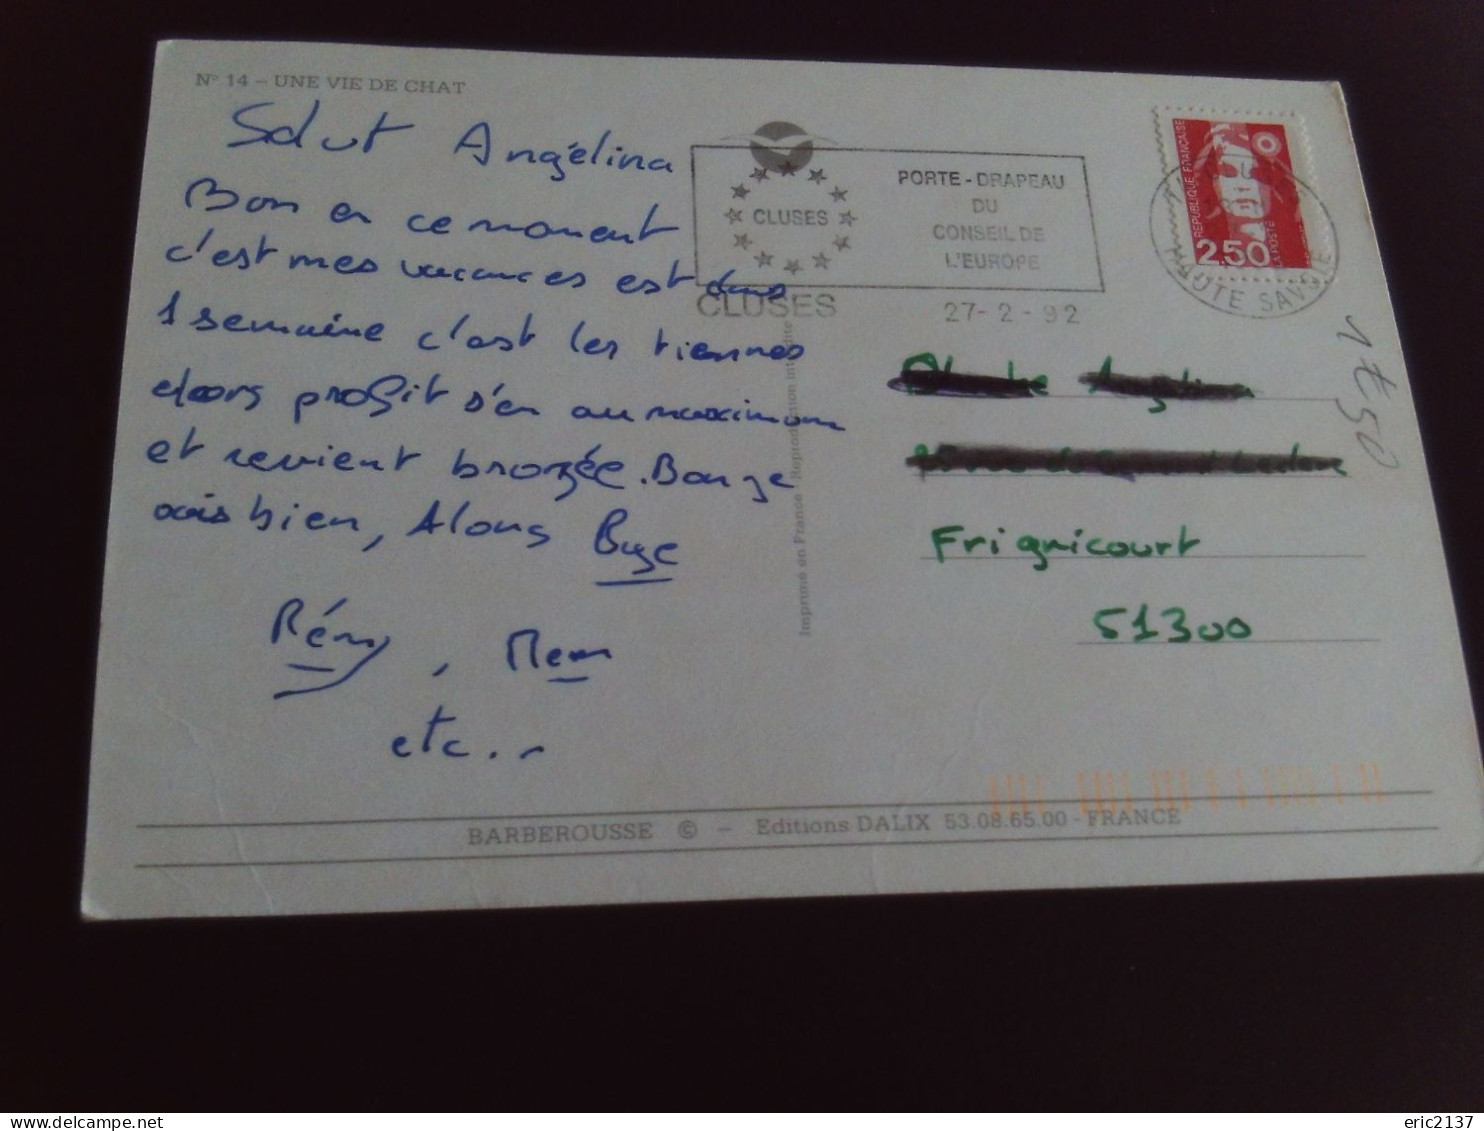 N° 14 – UNE VIE DE CHAT
Salut Angélina
Bon en ce moment
c'est mes vacances est dans
1 semaine c'est les tiennes
alors profit s'en au maximum
et revient bronzée. Bon je
vais bien, Alons Bye
Rémy, Mem
etc..
CLUSES
PORTE-DRAPEAU
DU
CONSEIL DE
L'EUROPE
CLUSES
27-2-92
REPUBLIQUE FRANÇAISE
2,50
LA POSTE
HAUTE SAVOIE
1€50
Angélina
Frignicourt
51300
Imprimé en France - Reproduction interdite
BARBEROUSSE © – Editions DALIX 53.08.65.00 - FRANCE
eric2137